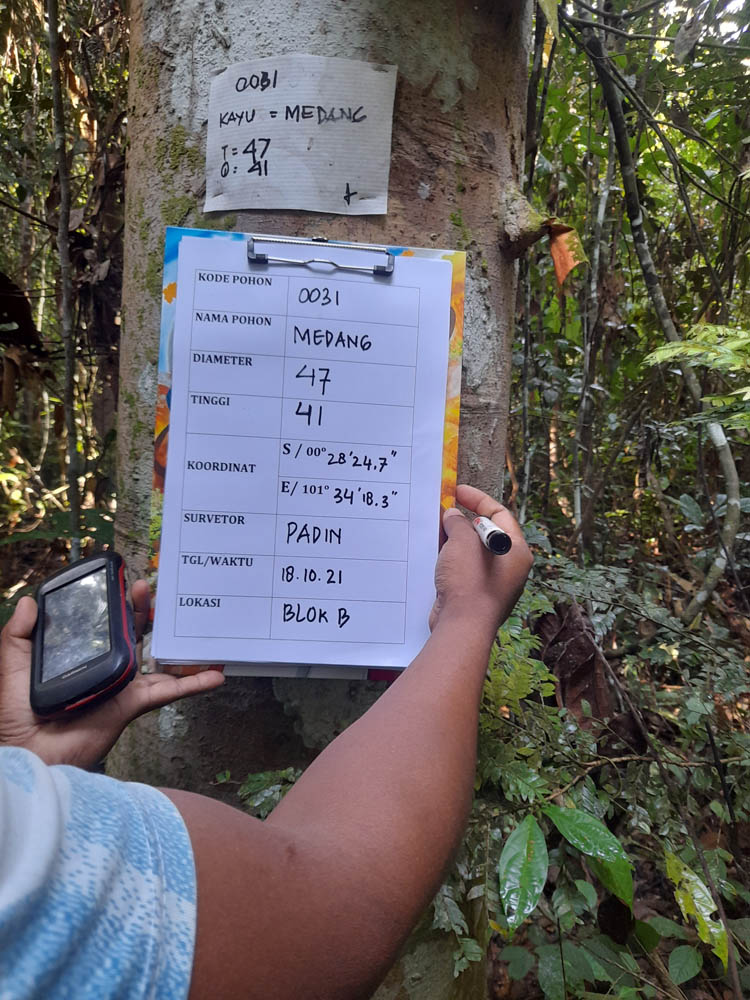 0031
KAYU = MEDANG
T = 47
O : 41
KODE POHON 0031
NAMA POHON MEDANG
DIAMETER 47
TINGGI 41
KOORDINAT S / 00° 28'24.7"
E/ 101° 34'18.3"
SURVETOR PADIN
TGL/WAKTU 18.10.21
LOKASI BLOK B
GARMIN